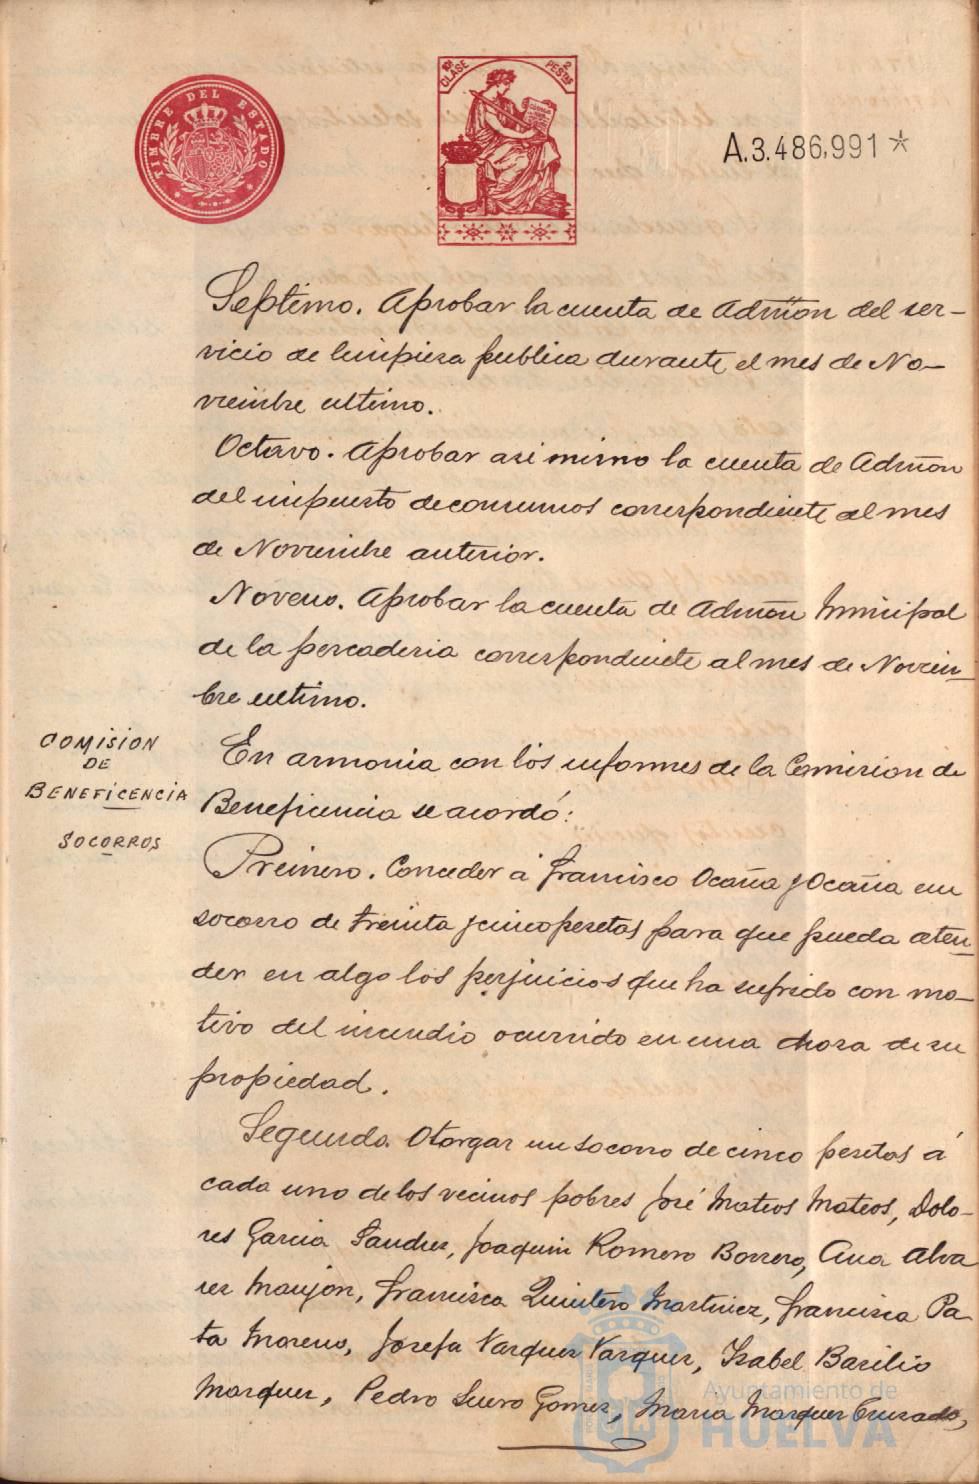 TIMBRE DEL ESTADO
10ª CLASE 2 PESTAS
A.3.486,991 *
Septimo. Aprobar la cuenta de Admon del ser-
vicio de limpieza publica durante el mes de No-
viembre ultimo.
Octavo. Aprobar asi mismo la cuenta de Admon
del impuesto de consumos correspondiente al mes
de Noviembre anterior.
Noveno. Aprobar la cuenta de Admon Municipal
de la pescaderia correspondiente al mes de Noviem-
bre ultimo.
COMISION
DE
BENEFICENCIA
SOCORROS
En armonia con los informes de la Comision de
Beneficencia se acordó:
Primero. Conceder á Francisco Ocaña y Ocaña un
socorro de treinta y cinco pesetas para que pueda aten-
der en algo los perjuicios que ha sufrido con mo-
tivo del incendio ocurrido en una choza de su
propiedad.
Segundo. Otorgar un socorro de cinco pesetas á
cada uno de los vecinos pobres José Mateos Mateos, Dolo-
res Garcia Sanchez, Joaquin Romero Borrero, Ana Alva
rez Maujon, Francisca Quintero Martinez, Francisca Pa-
ta Moreno, Josefa Vazquez Vazquez, Isabel Basilio
Marquez, Pedro Suero Gomez, Maria Marquez Cruzado,
Ayuntamiento de
HUELVA